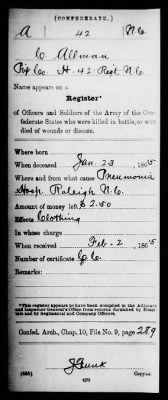 (CONFEDERATE.)
A 42 N.C.
C Allman
Pvt Co. H. 42 Regt N.C.
Name appears on a
Register*
of Officers and Soldiers of the Army of the Confederate States who were killed in battle, or who
died of wounds or disease.
Where born
When deceased Jan. 23 1865
Where and from what cause Pneumonia
Hosp Raleigh N.C.
Amount of money left $2.50
Effects Clothing
In whose charge
When received Feb. 2 1865
Number of certificate
Remarks:
*This register appears to have been compiled in the Adjutant
and Inspector General's Office from returns furnished by Hospitals
and Regimental and Company Officers.
Confed. Arch., Chap. 10, File No. 9, page 289
Copyist.